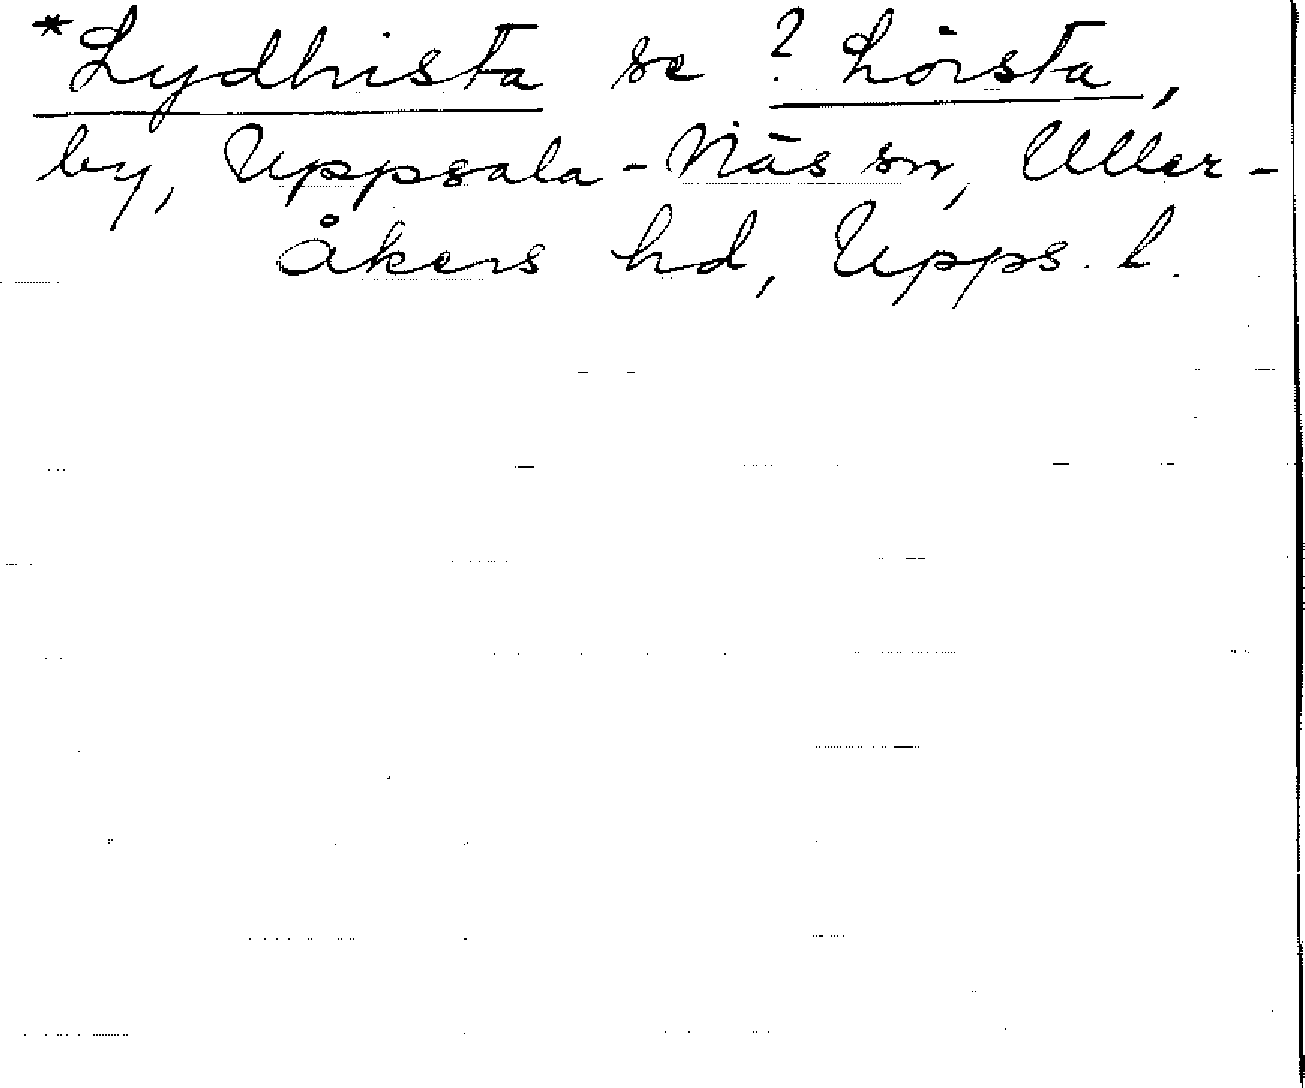 *Lydhista se ? Lörsta,
by, Uppsala-Näs sn, Uller-
åkers hd, Upps. l.